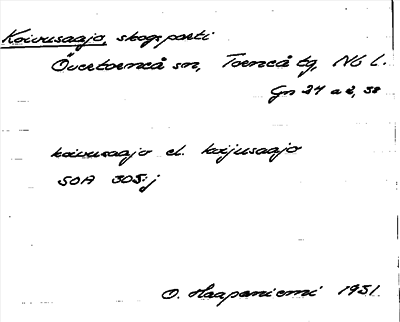 Koivusaajo, skogsparti
Övertorneå sn, Torneå tg, Nb l.
Gn 27 a 2, 38
koivusaajo el. koijusaajo
SOA 305:j
O. Haapaniemi 1951.